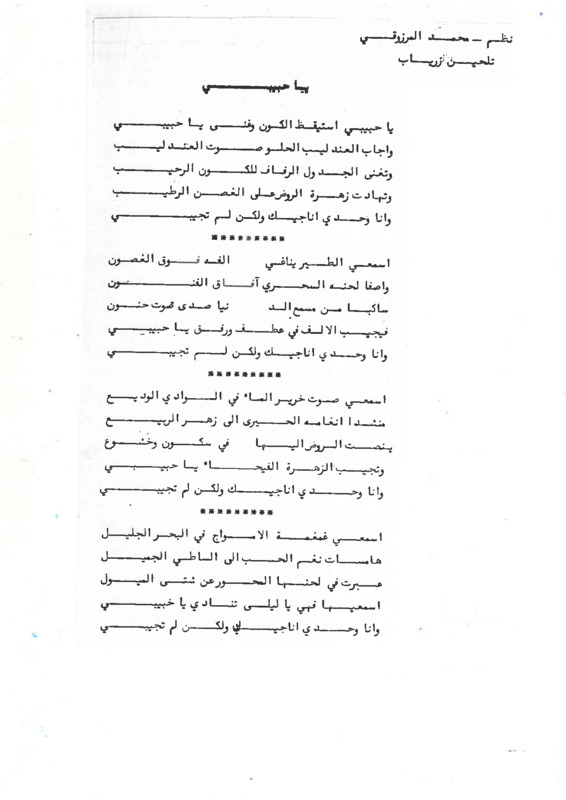 نظم - محمد المرزوقي
تلحين زرياب
يا حبيبي
يا حبيبي استيقظ الكون وغنى يا حبيبي
واجاب العندليب الحلو صوت العندليب
وتغنى الجدول الرفاف للكون الرحيب
وتهادت زهرة الروض على الغصن الرطيب
وانا وحدي اناجيك ولكن لم تجيبي
*********
اسمعي الطير يناغي الفه فوق الغصون
واصفا لحنه السحري آفاق الفنون
ساكبا من مسمع الدنيا صدى صوت حنون
فيجيب الالف في عطف ورفق يا حبيبي
وانا وحدي اناجيك ولكن لم تجيبي
*********
اسمعي صوت خرير الماء في الوادي الوديع
منشدا انغامه الحيرى الى زهر الربيع
ينصت الروض اليها في سكون وخشوع
وتجيب الزهرة الفيحاء يا حبيبي
وانا وحدي اناجيك ولكن لم تجيبي
*********
اسمعي غمغمة الامواج في البحر الجليل
هامسات نغم الحب الى الساطي الجميل
عبرت في لحنها المحور عن شتى الميول
اسمعيها فهي يا ليلى تنادي يا خبيبي
وانا وحدي اناجيك ولكن لم تجيبي